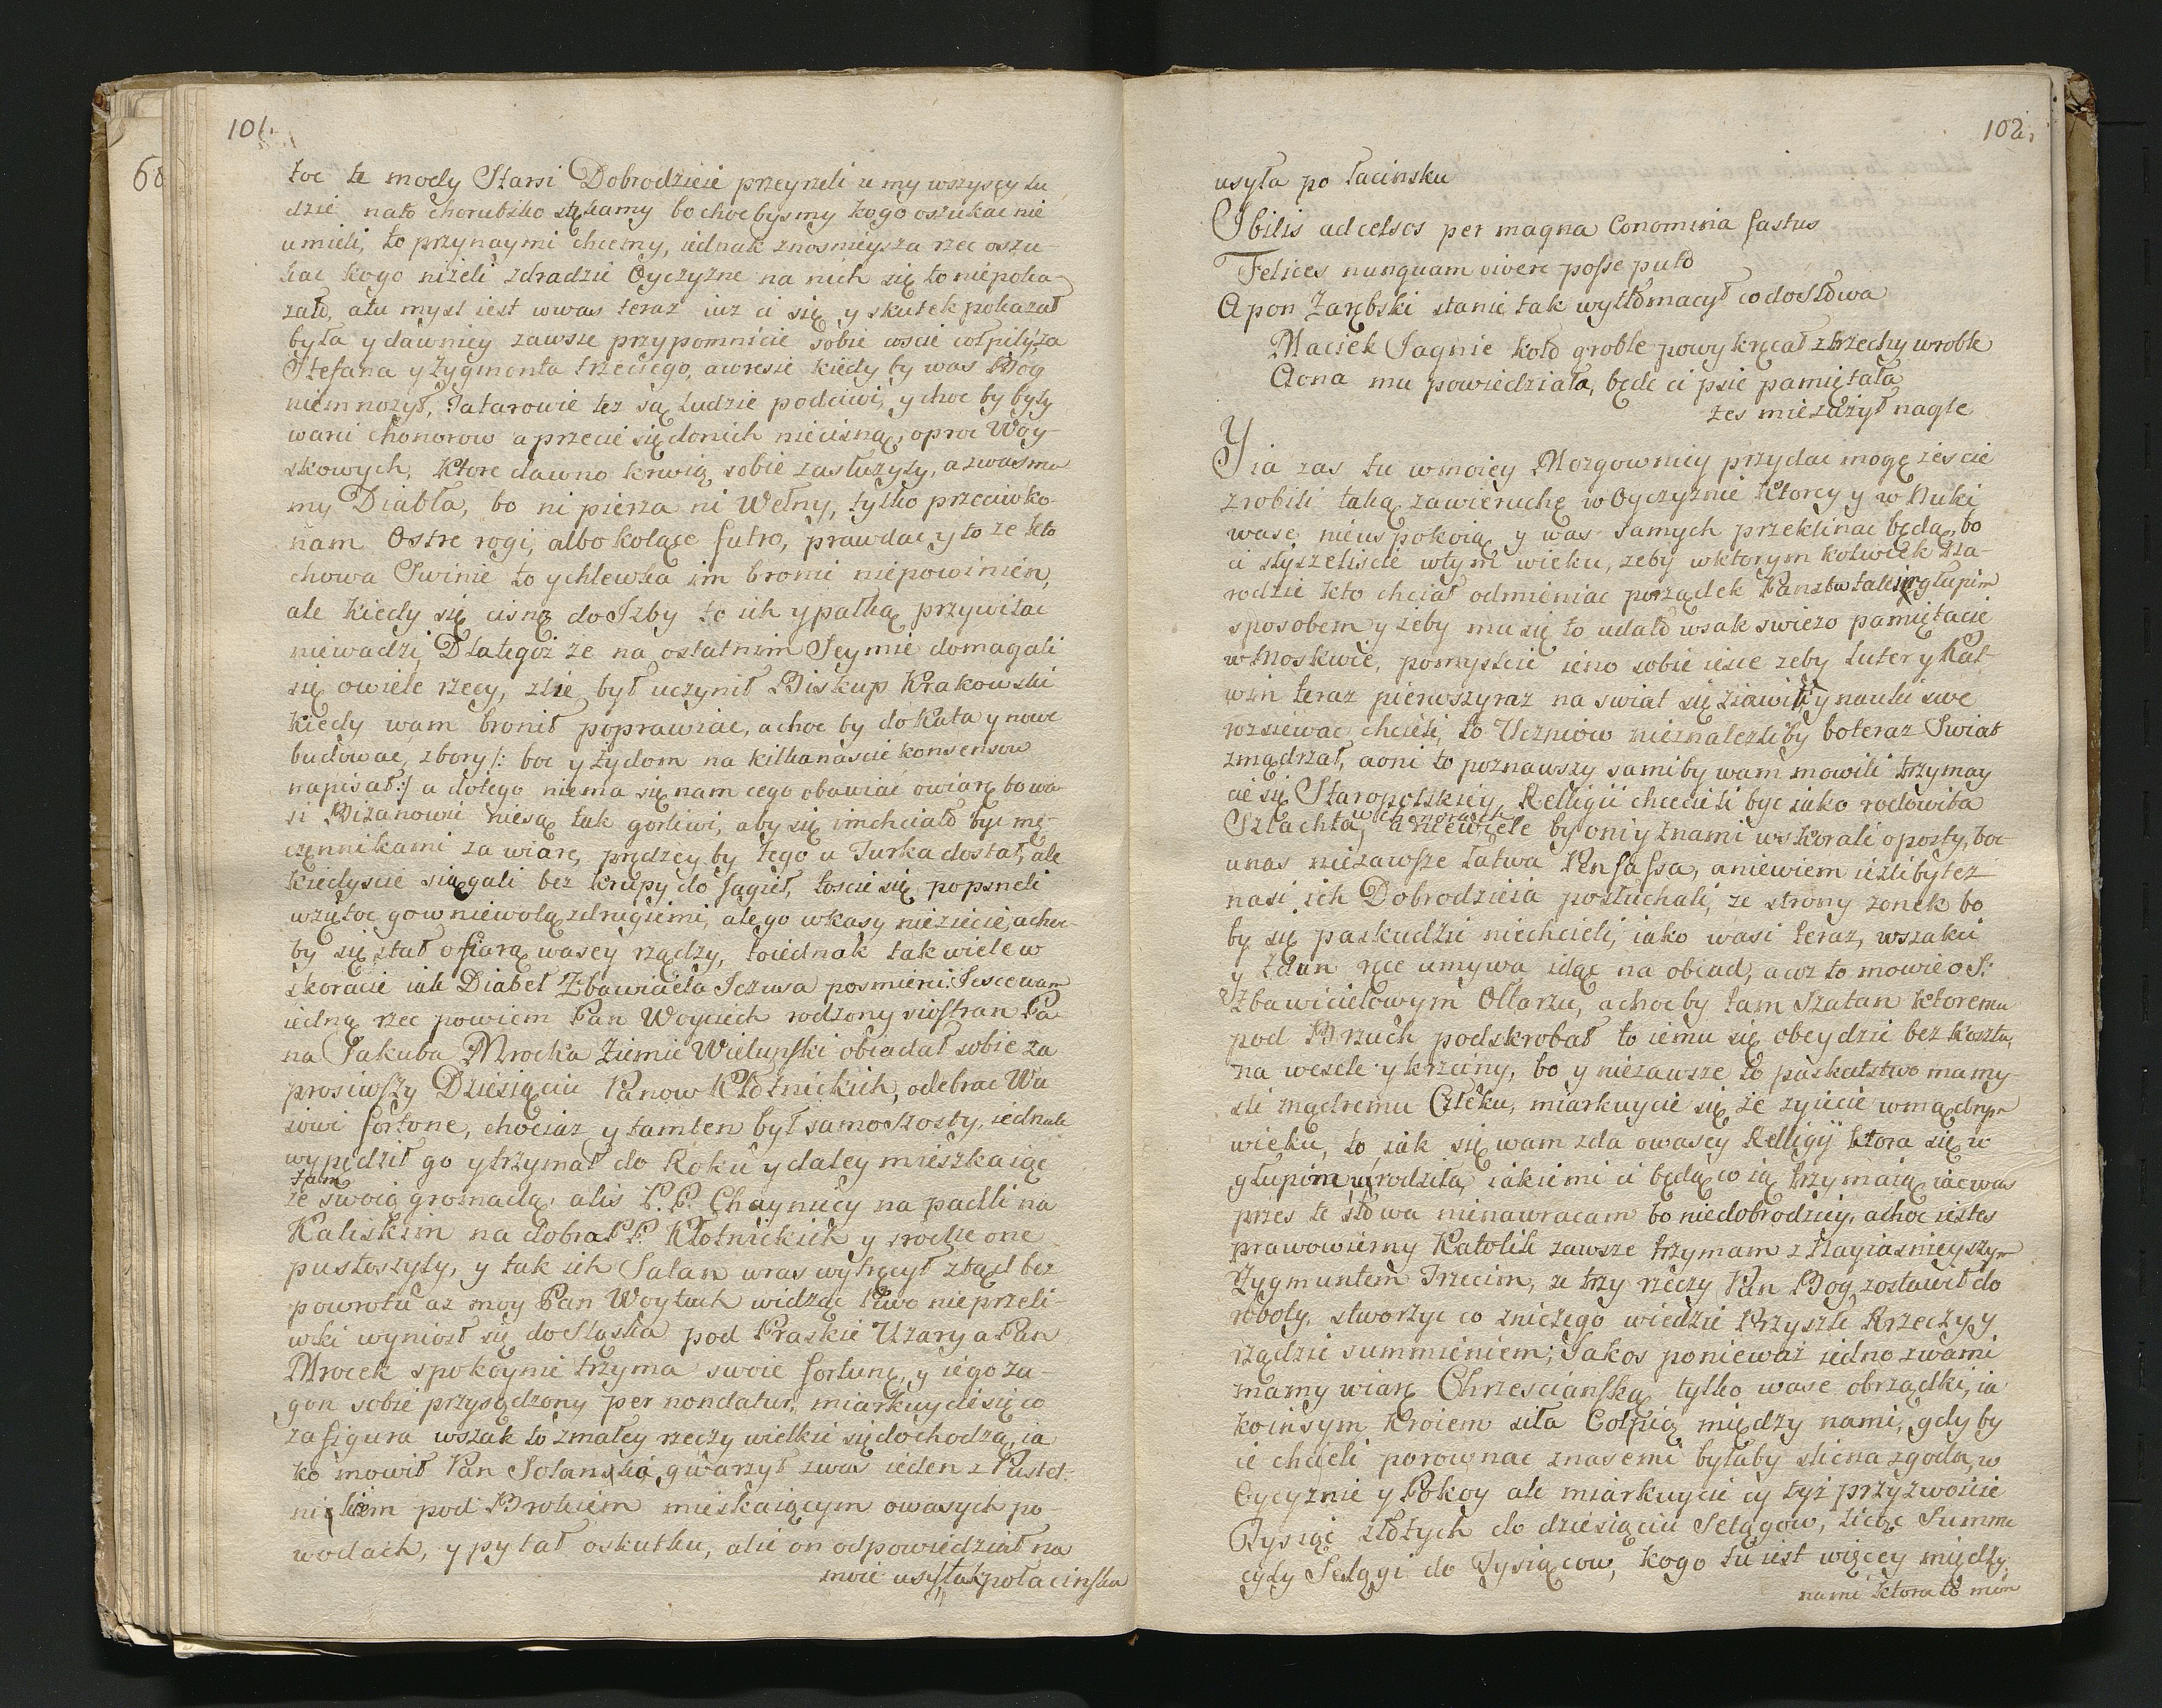 101.
68
toc te mody Starsi Dobrodzieie przeyzeli u my wszyscy lu
dzie nato chorubsko stękamy bo chocbysmy kogo oszukac nie
umieli, to przynaymi chcemy, iednak znosnieysza rzec oszu-
kac kogo nizeli zdradzic Oyczyzne na nich się to niepoka-
zało, atu mysl iest wwas teraz iuz ci się y skutek pokazał
była y dawniey zawsze przypomnicie sobie coscie
Stefana y Zygmonta trzeciego, awresie kiedy by was Bog
niemnozył, Tatarowie tez są ludzie podciwi, y choc by byly
warci chonorow a przecie się donich niecisną, oproc Woy-
skowych, ktore dawno krwią sobie zasłuzyły, a zwasma
my Diabła, bo ni pierza ni Wełny, tylko przeciwko
nam Ostre rogi, albo kolące futro, prawdac y to ze kto
chowa Swinie to y chlewka im bronic niepowinien,
ale kiedy się cisną do Izby to ich y pałką przywitac
niewadzi, Dlategoz ze na ostatnim Seymie domagali
się owiele rzecy, zlie był uczynił Biskup Krakowski
kiedy wam bronił poprawiac, achoc by do kata y nowe
budowac, zbory /: boc y zydom na kilkanascie konsensow
napisał :/ a dotego niema się nam cego obawiac owiarę bo wa-
si Bizanowie niesą tak gorliwi, aby się imchciało byc mę-
czennikami za wiarę, prędzey by tego u Turka dostał, ale
kiedyscie sięgali bez krupy do Jagieł, toscie się popsneli
wziętoc gow niewolą zdrugiemi, ale go wkasy nieziecie, achoc
by się stał ofiarą wasey rządzy, toiednak tak wiele w
skoracie iak Diabeł Zbawiciela Jezusa posmieni. Jesce wam
iedną rzec powiem Pan Woyciech rodzony siostran Pa
na Jakuba Mrocka Ziemie Wielunski obiadał sobie za
prosiwszy Dziesiąciu Panow Kłotnickich, odebrac Wu
iowi fortone, chociaz y tamten był samoszosty, iednak
wypędził go y trzymał do Roku y daley mieszkaiąc
Tam
ze swoią gromadą, alis P. P. Chaynucy na padli na
Kaliskim na dobra P P. Kłotnickich y srodze one
pustoszyly, y tak ich Satan wras wytręcył ztąd bez
powrotu az moy Pan Woytech widząc Piwo nieprzeli-
wki wyniosł się do Sląska pod Praskie Uzary a Pan
Mrocek spokoynie trzyma swoie fortunę, y iego za-
gon sobie przysądzony per nondatur, miarkuycie się co
za figura wszak to zmałey rzeczy wielkie się dochodzą, ia
ko mowił Pan gwarzył zwas ieden z Pustel-
nikiem pod Brokiem mieskaiącym owasych po
wodach, y pytał oskutku, alic on odpowiedział na
moie usyłak połacinsku
102.
usyła po łacinsku
Ibilis ad celsos per magna Conomina fastus
Felices nunquam vivere posse puto
A pon Zarębski stanie tak wytłomacył co do Słowa
Maciek Jagnie koło groble powykręcał ztrzechy wroble
Aona mu powiedziała, będe ci psie pamiętała
zes mie zazył nagle
Y ia zas tu wmoiey Mozgownicy przydac mogę zescie
zrobili taką zawieruchę w Oyczyznie ktorey y w Nuki
wase nieuspokoią y was samych przeklinac będą, bo
ci słyszeliscie wtym wieku, zeby wktorym kolwiek Na-
rodzie kto chciał odmieniac porządek Panstw takim głupim
sposobem y zeby mu się to udało wsak swiezo pamiętacie
w Moskwie, pomyslcie ieno sobie iesce zeby Luter y Kal-
win teraz pierwszy raz na swiat się ziawili y nauki swe
rozsiewac chcieli, to Uczniow nieznalezliby boteraz Swiat
zmądrzał, aoni to poznawszy samiby wam mowili trzymay
cie się Staropolskiey Relligii chcecieli byc iako rodowita
Szlachta w chonorach, a niewiele by oni y znami wskorali oposty, boc
unas niezawsze łatwa Pensassa, aniewiem iezliby tez
nasi ich Dobrodzieia posłuchali, ze strony zonek bo
by się paskudzic niechcieli, iako wasi teraz, wszakci
y Zdun ręce umywa idąc na obiad, a coz to mowic o S:
Zbawicielowym Ołtarzu, achocby tam Szatan ktoremu
pod Brzuch podskrobał to iemu się obeydzie bez kosztu,
na wesele y krzciny, bo y niezawsze to paskutstwo mamy-
sli mądremu Człeku, miarkuycie się ze zyiecie wmądrym
wieku, to iak się wam zda owasey Relligij ktora się w
głupim urodziła, iakiemi ci będą co ią trzymaią iacwas
przes te słowa nienawracam bo niedobrodziey, achoc iestes
prawowierny Katolik zawsze trzymam z Nayiasnieyszym
Zygmuntem Trzecim, ze trzy rzeczy Pan Bog zostawił do
roboty, stworzyc co zniczego wiedziec Przyszłe Rzeczy, y
rządzic summieniem; Jakos poniewaz iedno zwami
mamy wiarę Chrzescianską tylko wase obrządki, ia
koinsym Kroiem siła Cołpią między nami, gdyby
ie chcieli porownac znasemi byłaby slicna zgoda, w
Oycyznie y Pokoy ale miarkuycie cy tyz przyzwoicie
Tysiąc złotych do dziesiąciu Selągow, licąc Summe
cyly Selągi do Tysiącow, kogo tu iest więcey między
nami ktora to